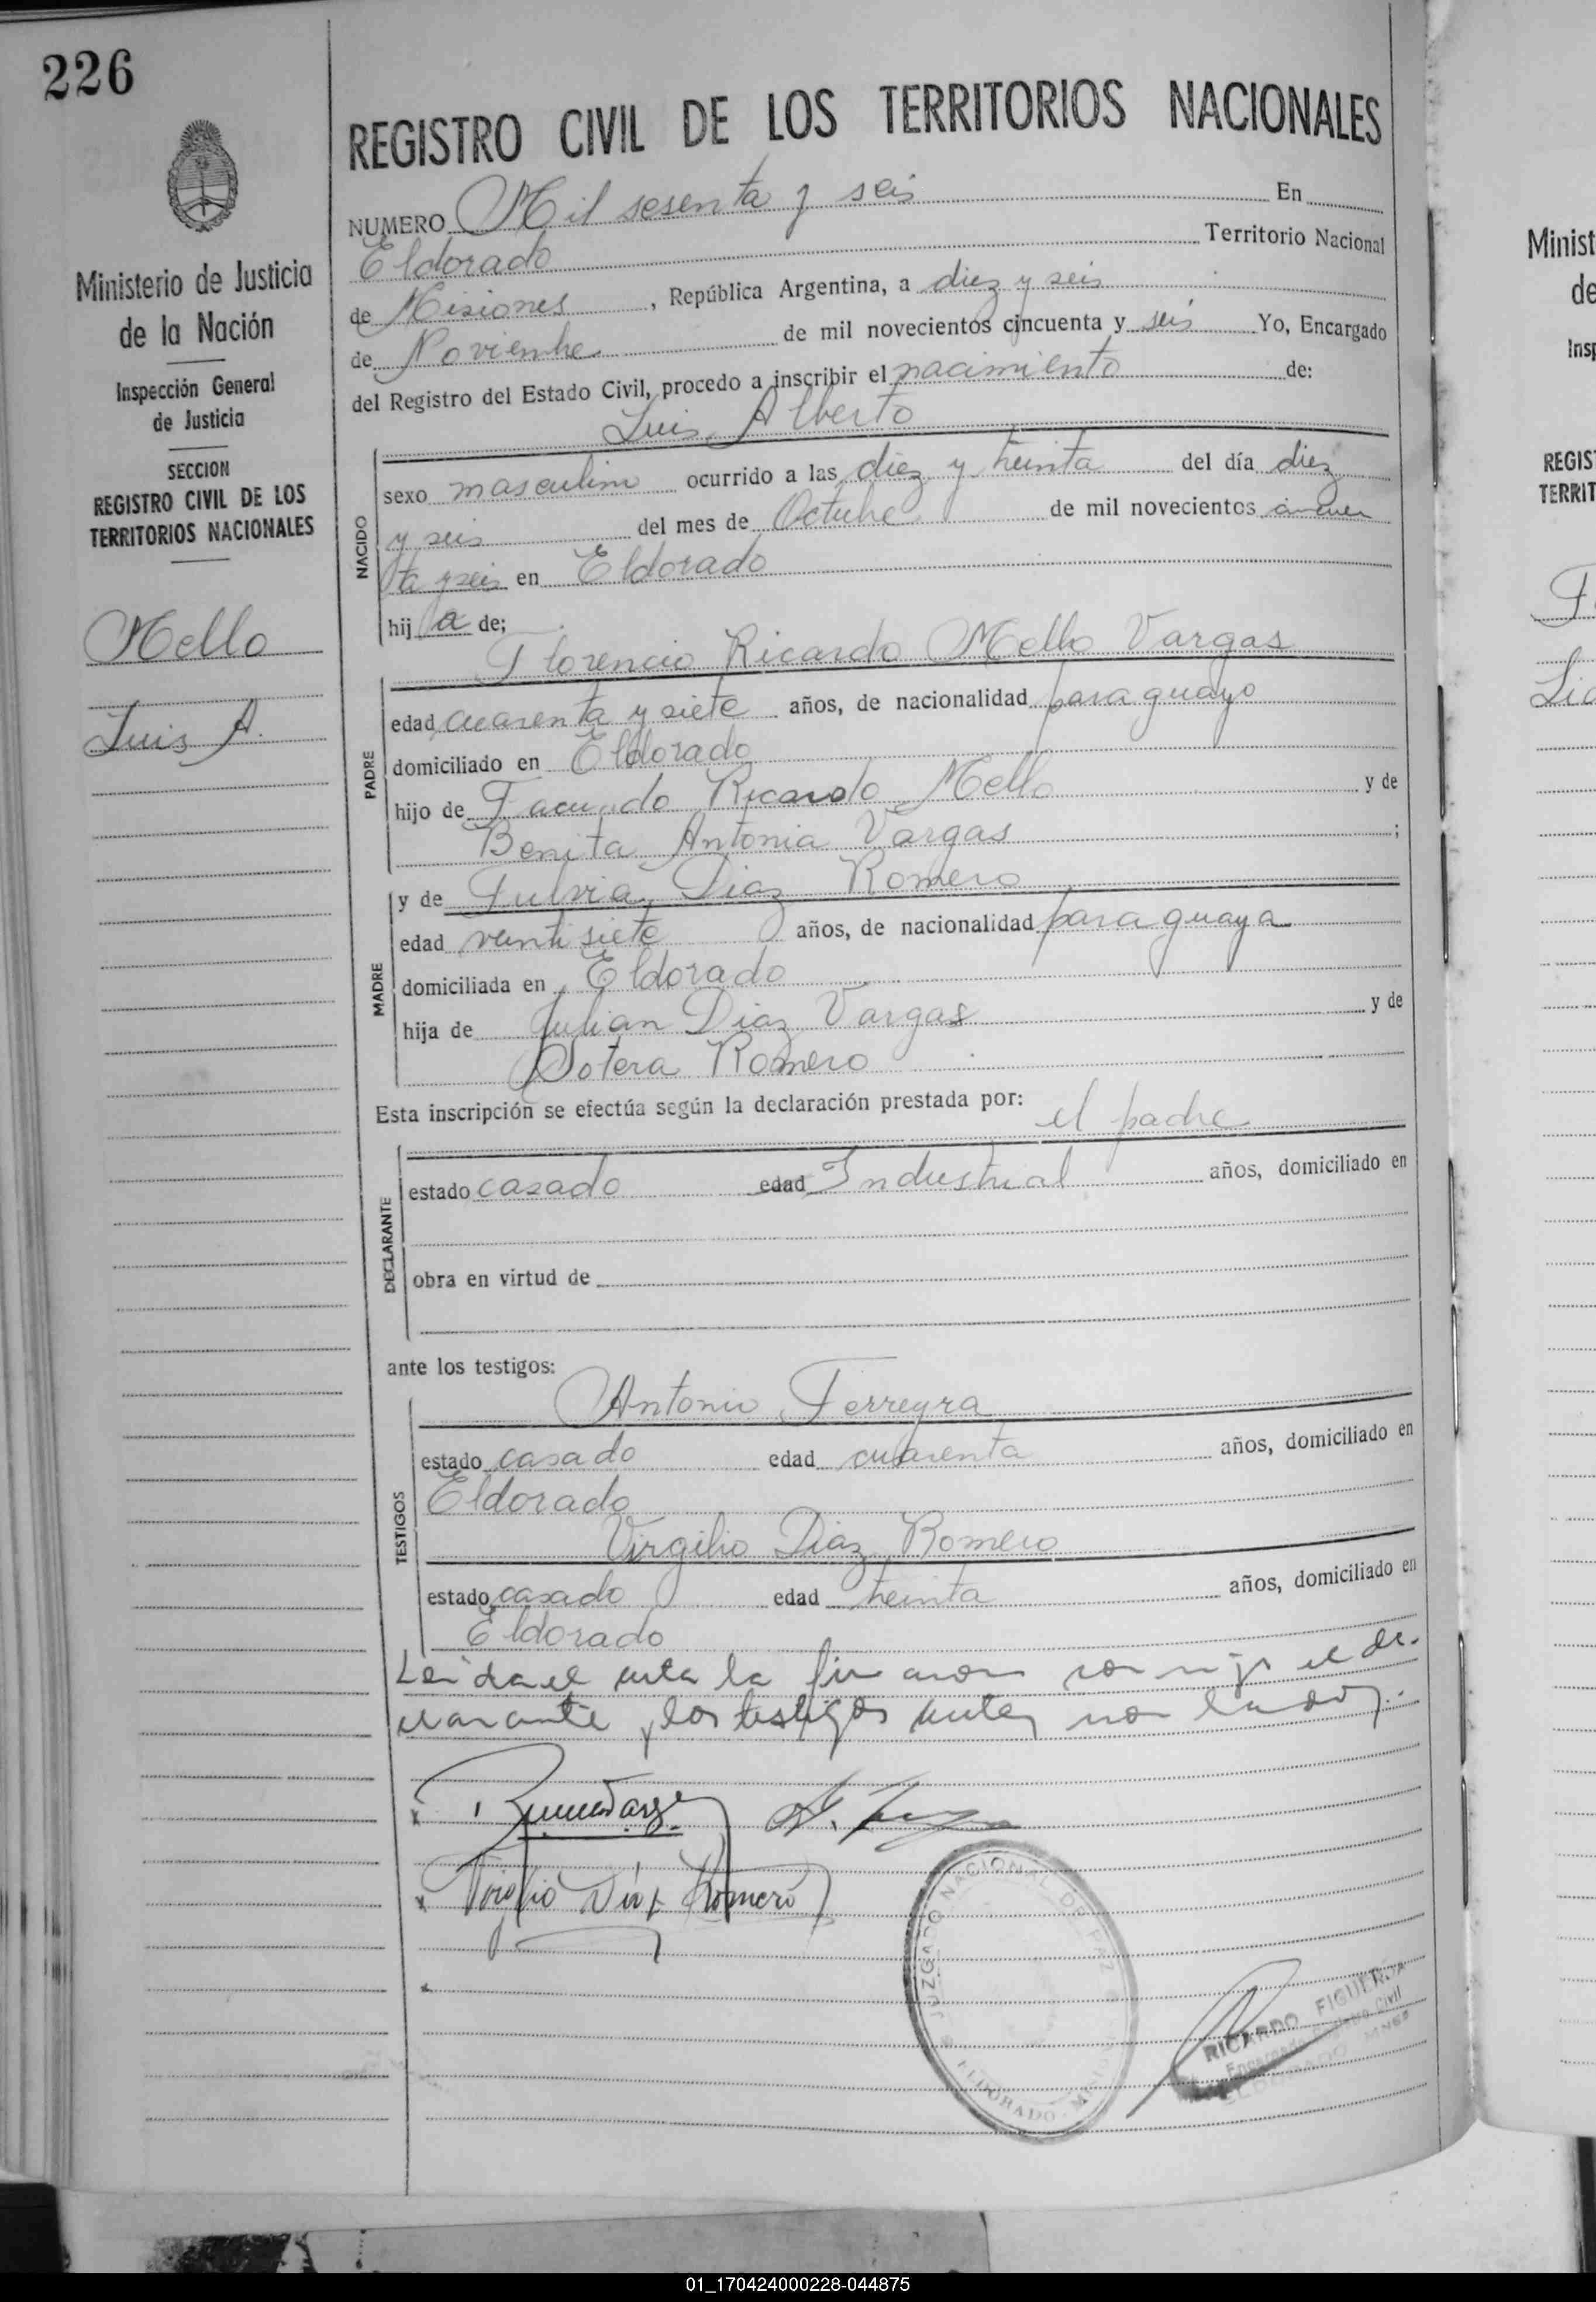 226
Ministerio de Justicia
de la Nación
Inspección General
de Justicia
SECCION
REGISTRO CIVIL DE LOS
TERRITORIOS NACIONALES
Mello
Luis A.
REGISTRO CIVIL DE LOS TERRITORIOS NACIONALES
NUMERO Mil sesenta y seis En
Eldorado Territorio Nacional
de Misiones, República Argentina, a diez y seis
de Noviembre de mil novecientos cincuenta y seis Yo, Encargado
del Registro del Estado Civil, procedo a inscribir el nacimiento de:
Luis Alberto
NACIDO
sexo masculino ocurrido a las diez y treinta del día diez
y seis del mes de Octubre de mil novecientos cincuen
ta y seis en Eldorado
hij a de;
Florencio Ricardo Mello Vargas
PADRE
edad cuarenta y siete años, de nacionalidad paraguayo
domiciliado en Eldorado
hijo de Facundo Ricardo Mello y de
Benita Antonia Vargas ;
MADRE
y de Fulvia Diaz Romero
edad veintisiete años, de nacionalidad paraguaya
domiciliada en Eldorado
hija de Julian Diaz Vargas y de
Sotera Romero
Esta inscripción se efectúa según la declaración prestada por: el padre
DECLARANTE
estado casado edad Industrial años, domiciliado en
obra en virtud de
ante los testigos:
TESTIGOS
Antonio Ferreyra
estado casado edad cuarenta años, domiciliado en
Eldorado
Virgilio Diaz Romero
estado casado edad treinta años, domiciliado en
Eldorado
Leida el acta la firmaron conmigo el de-
clarante y los testigos antes nombrados.-
Virgilio Díaz Romero
JUZGADO NACIONAL DE PAZ
ELDORADO
RICARDO FIGUEROA
Encargado Registro Civil
ELDORADO MNES
Minist
de
Insp
REGIS
TERRIT
01_170424000228-044875